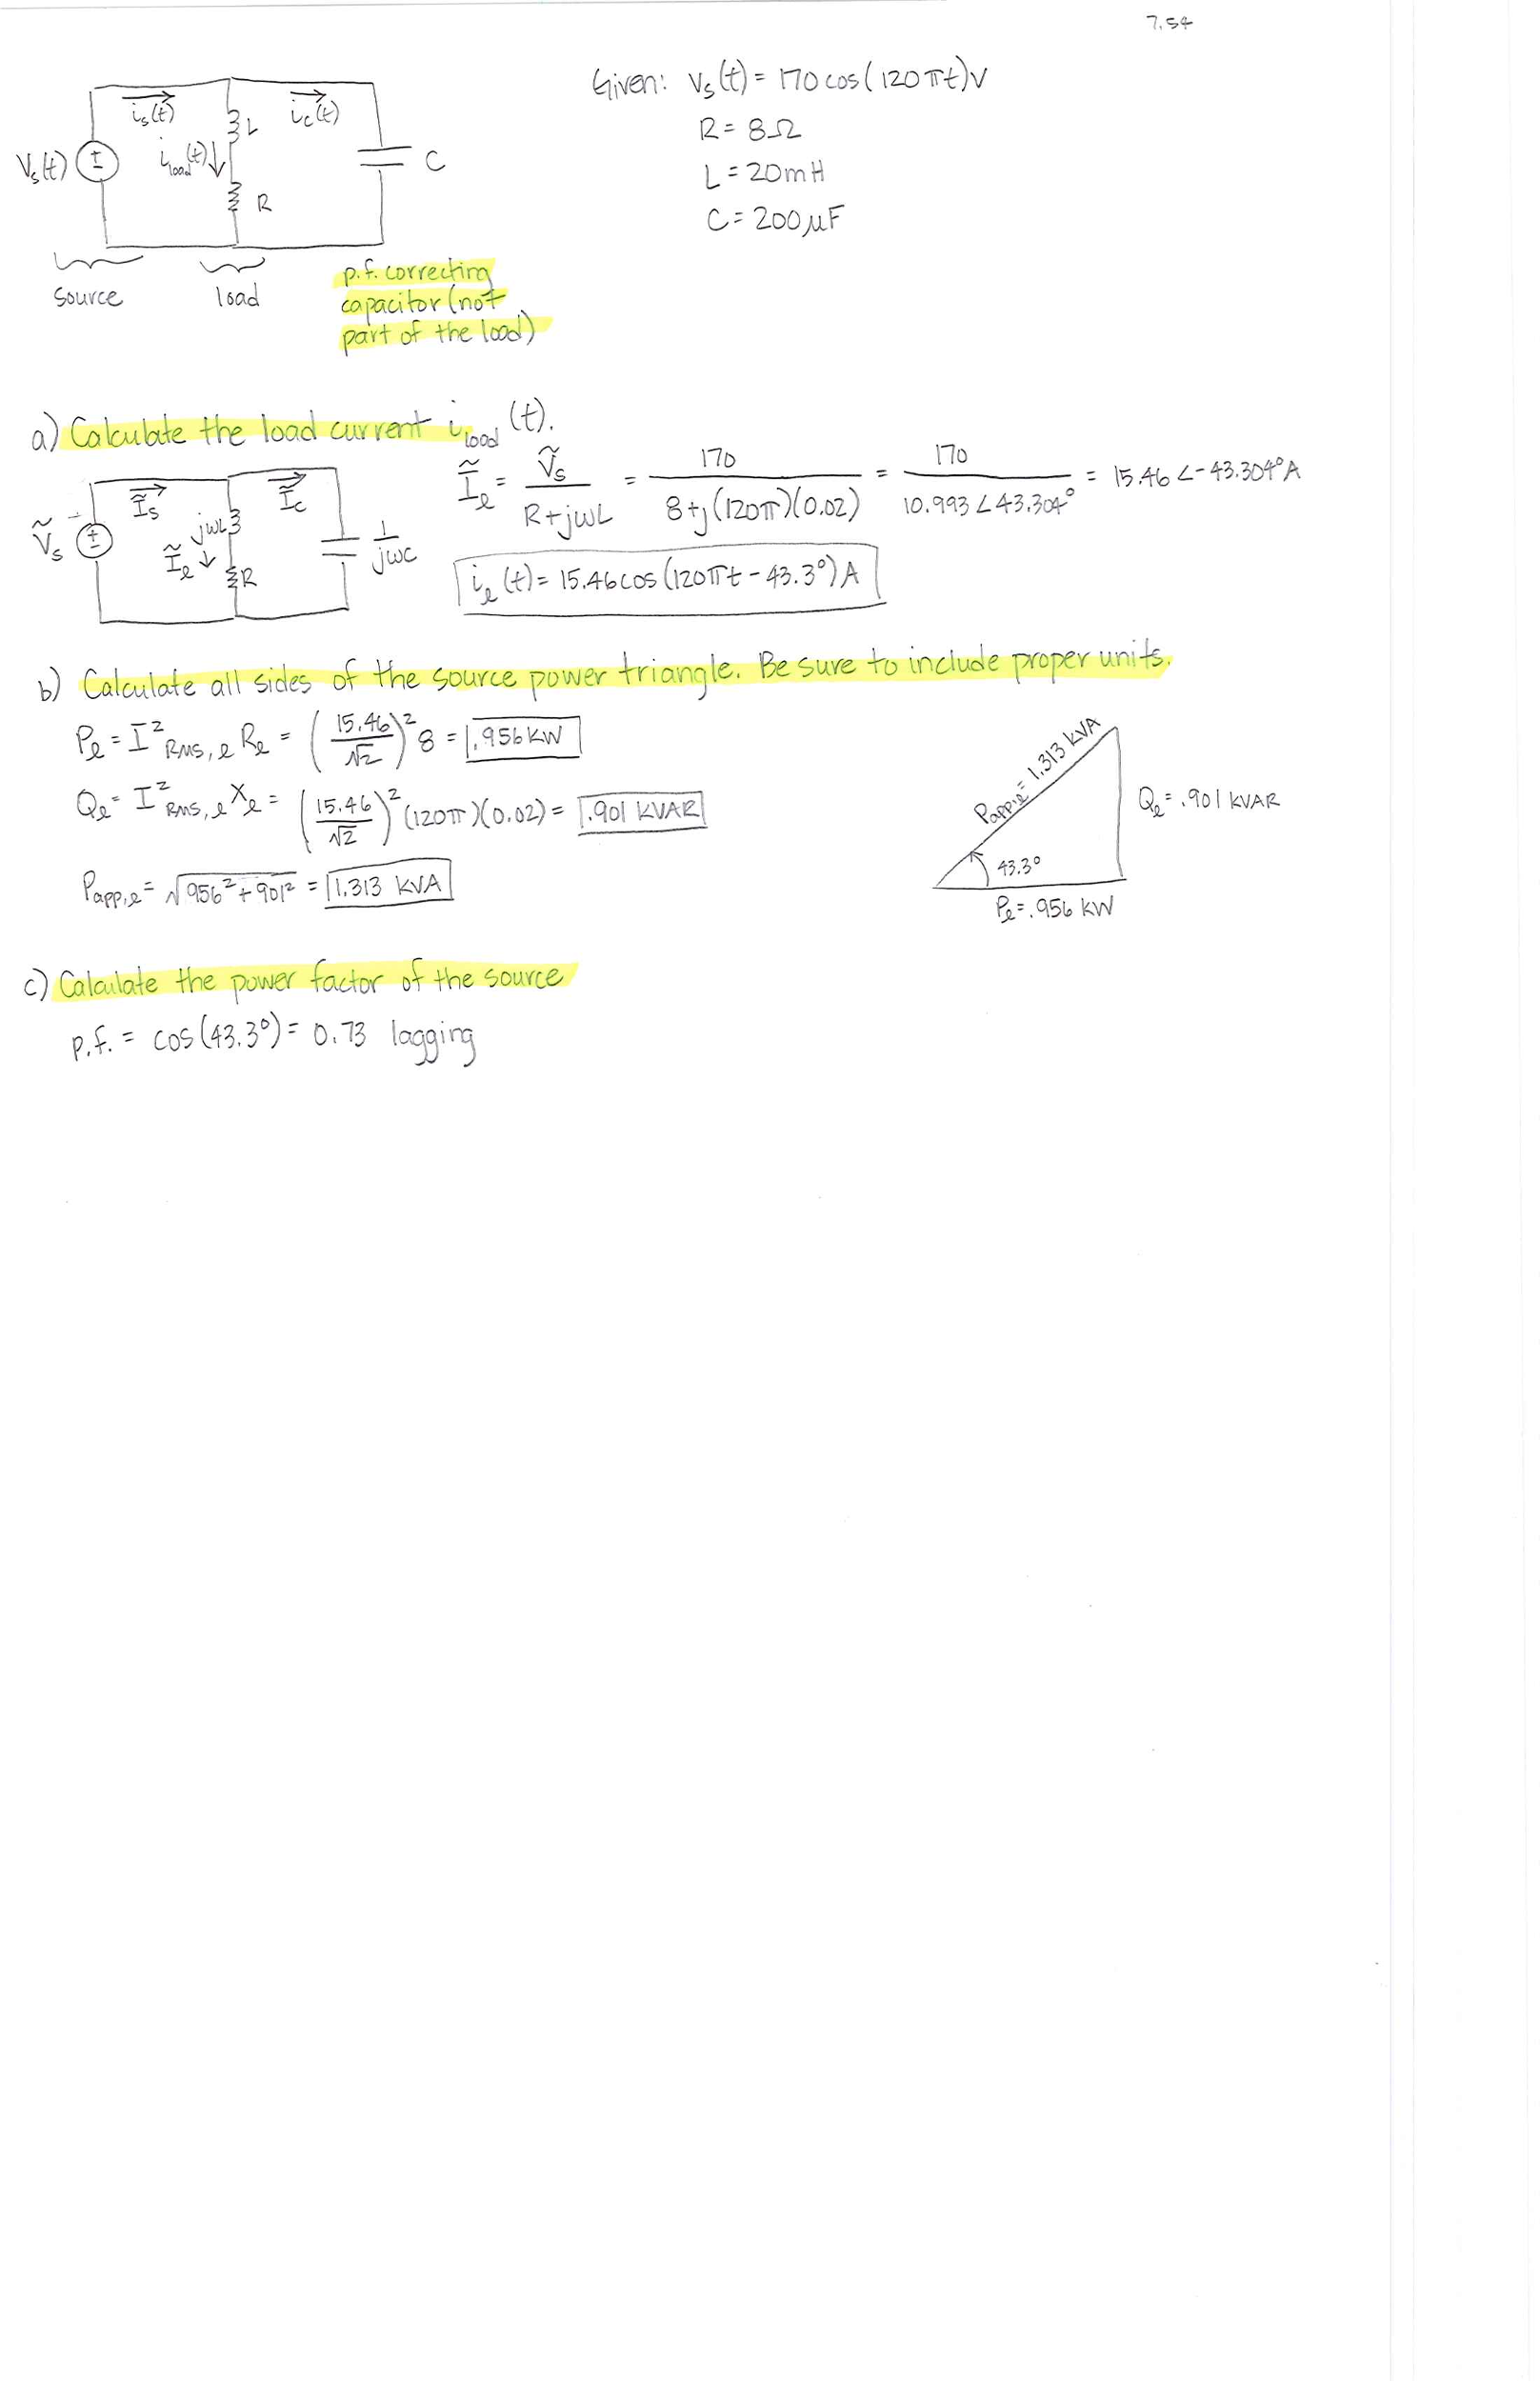 7.54
Given: Vs(t) = 170 cos(120πt)V
R = 8Ω
L = 20mH
C = 200μF
is(t)
ic(t)
L
iload(t)↓
Vs(t)
±
C
R
Source
load
p.f. correcting
capacitor (not
part of the load)
a) Calculate the load current iload(t).
Ĩs
Ĩc
Ṽs
±
jωL
Ĩℓ ↓
R
1/jωC
Ĩℓ = Ṽs/(R+jωL) = 170/(8+j(120π)(0.02)) = 170/(10.993∠43.304°) = 15.46∠-43.304°A
iℓ(t) = 15.46cos(120πt - 43.3°)A
b) Calculate all sides of the source power triangle. Be sure to include proper units.
Pℓ = I²RMS,ℓ Rℓ = (15.46/√2)² 8 = .956 kW
Qℓ = I²RMS,ℓ Xℓ = (15.46/√2)² (120π)(0.02) = .901 KVAR
Papp,ℓ = √(956² + 901²) = 1.313 KVA
Papp,ℓ = 1.313 KVA
Qℓ = .901 KVAR
43.3°
Pℓ = .956 KW
c) Calculate the power factor of the source
p.f. = cos(43.3°) = 0.73 lagging